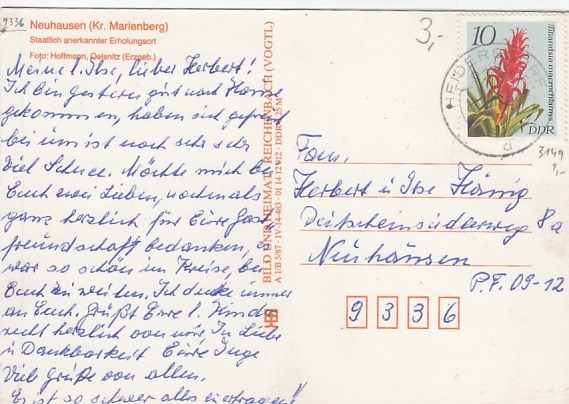 9336
Neuhausen (Kr. Marienberg)
Staatlich anerkannter Erholungsort
Foto: Hoffmann, Oelsnitz (Erzgeb.)
Meine l. Ilse, lieber Herbert!
Ich bin gestern gut nach Hause
gekommen, haben sich gefreut
bei uns ist noch sehr sehr
viel Schnee. Möchte mich bei
Euch zwei Lieben, nochmals
ganz herzlich für Eure Gast-
freundschaft bedanken, es
war so schön im Kreise, bei
Euch zu weilen. Ich denke immer
an Euch. Grüßt Eure l. Kinder
recht herzlich von mir. In Liebe
u Dankbarkeit Eure Inge
Viel Grüße von allen.
Es ist so schwer alles zu ertragen!
BILD UND HEIMAT REICHENBACH (VOGTL)
A 1/B 5/87 IV-14-483 01 14 12 DDR M
3,-
10
Tillandsia macrochlamys
DDR
HEIDERSDORF
3149
1,-
Fam.
Herbert u Ilse König
Deutscheinsiedlerweg 8a
Neuhausen
P.F. 09-12
9 3 3 6